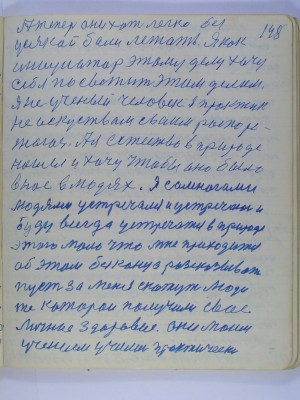 148
А теперь они хотят легко без
всякой боли летать. Я как
инициатор этому делу хочу
себя посвятить этим делам.
Я не ученый человек я практик
не искуствам своим распола-
гаю. А я естество в природе
нашел и хочу чтобы оно было
в нас в людях. Я со многими
людями встречался и встречаюсь и
буду всегда встречатся в природе
этого мало что мне приходится
об этом без конца рассказывать
пусть за меня скажут люди
те которои получили свое
личное здоровие. они моим
учением учились практически